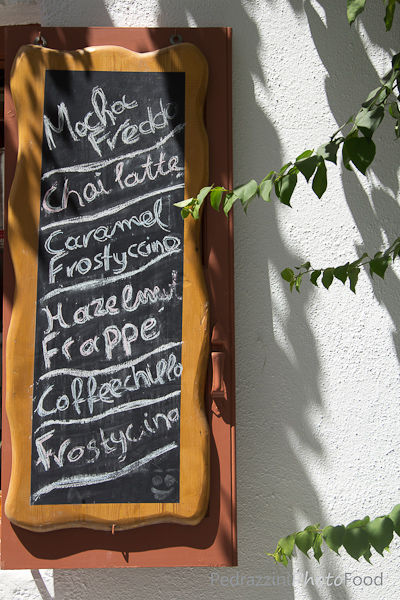 Mocha
Freddo
Chai latte
Caramel
Frostyccino
Hazelnut
Frappe
Coffeechillo
Frostycino
PedrazziniPhotoFood